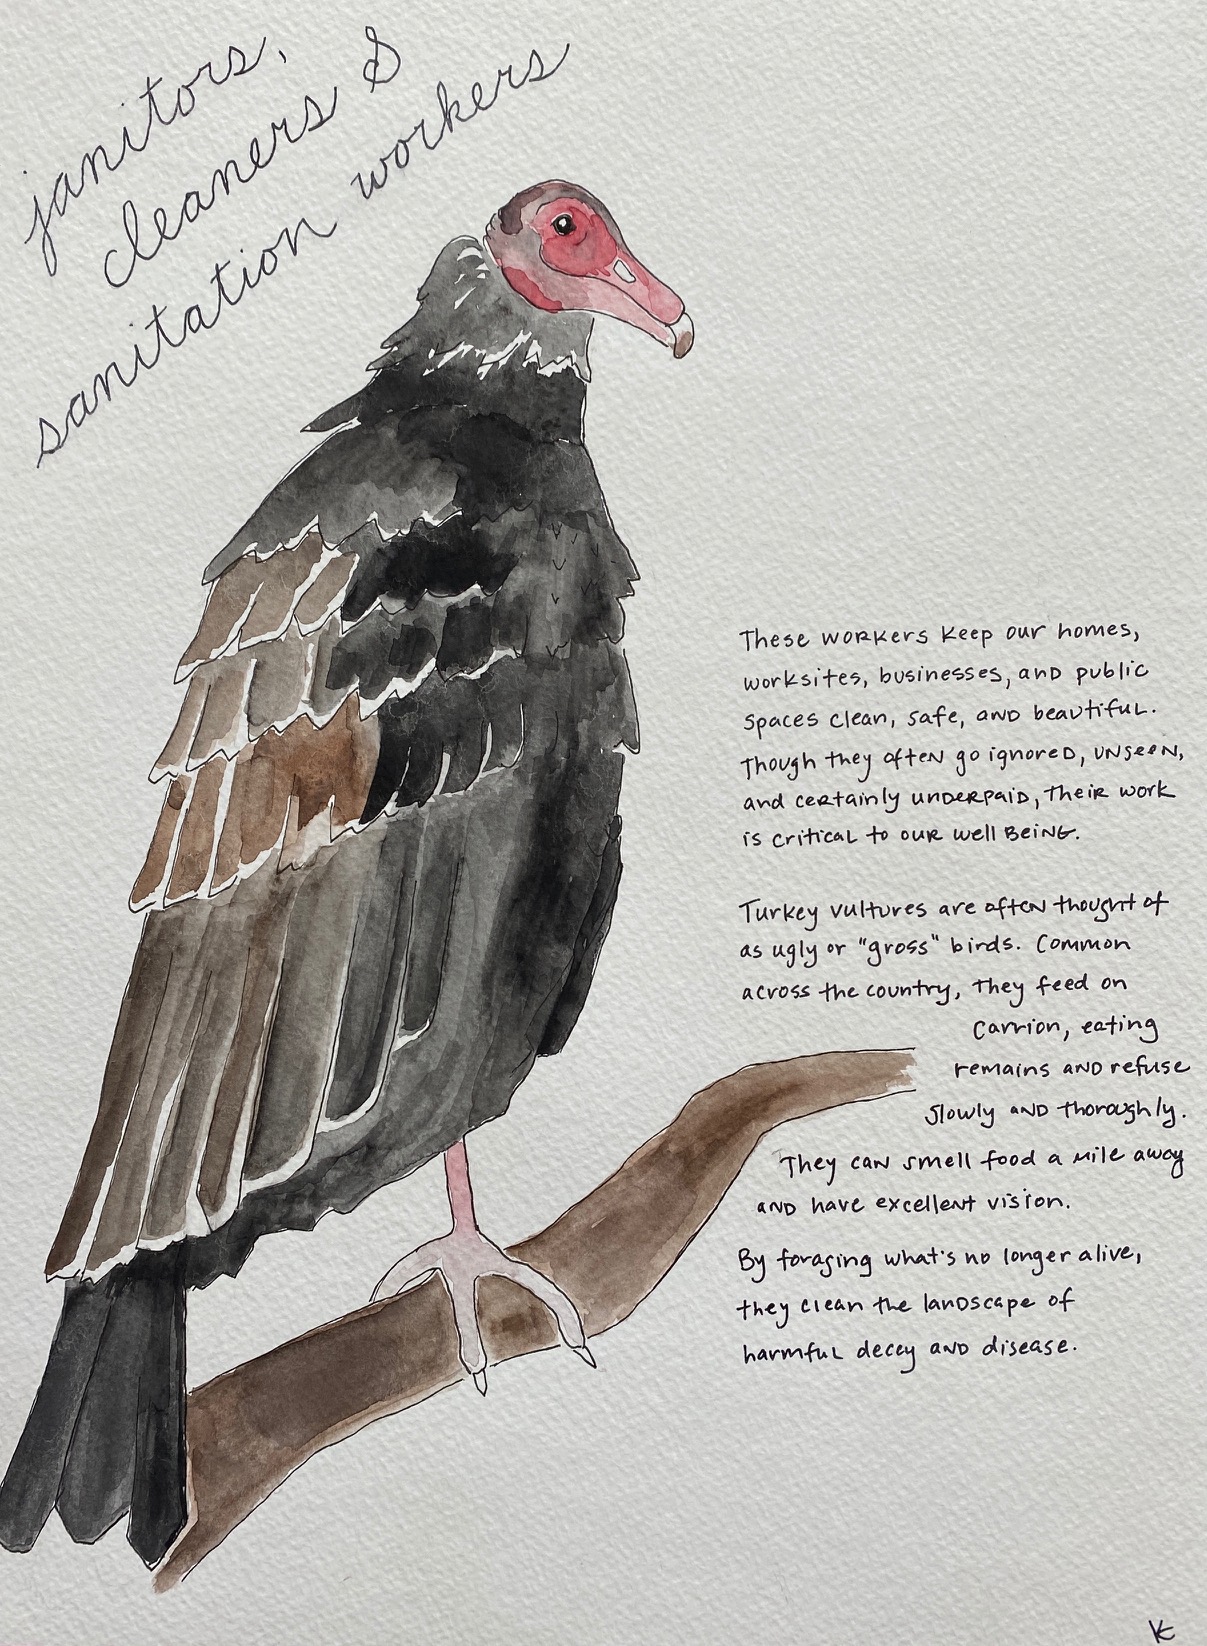 janitors,
cleaners &
sanitation workers
These workers keep our homes,
worksites, businesses, and public
spaces clean, safe, and beautiful.
Though they often go ignored, unseen,
and certainly underpaid, their work
is critical to our well being.
Turkey vultures are often thought of
as ugly or "gross" birds. Common
across the country, they feed on
carrion, eating
remains and refuse
slowly and thoroughly.
They can smell food a mile away
and have excellent vision.
By foraging what's no longer alive,
they clean the landscape of
harmful decay and disease.